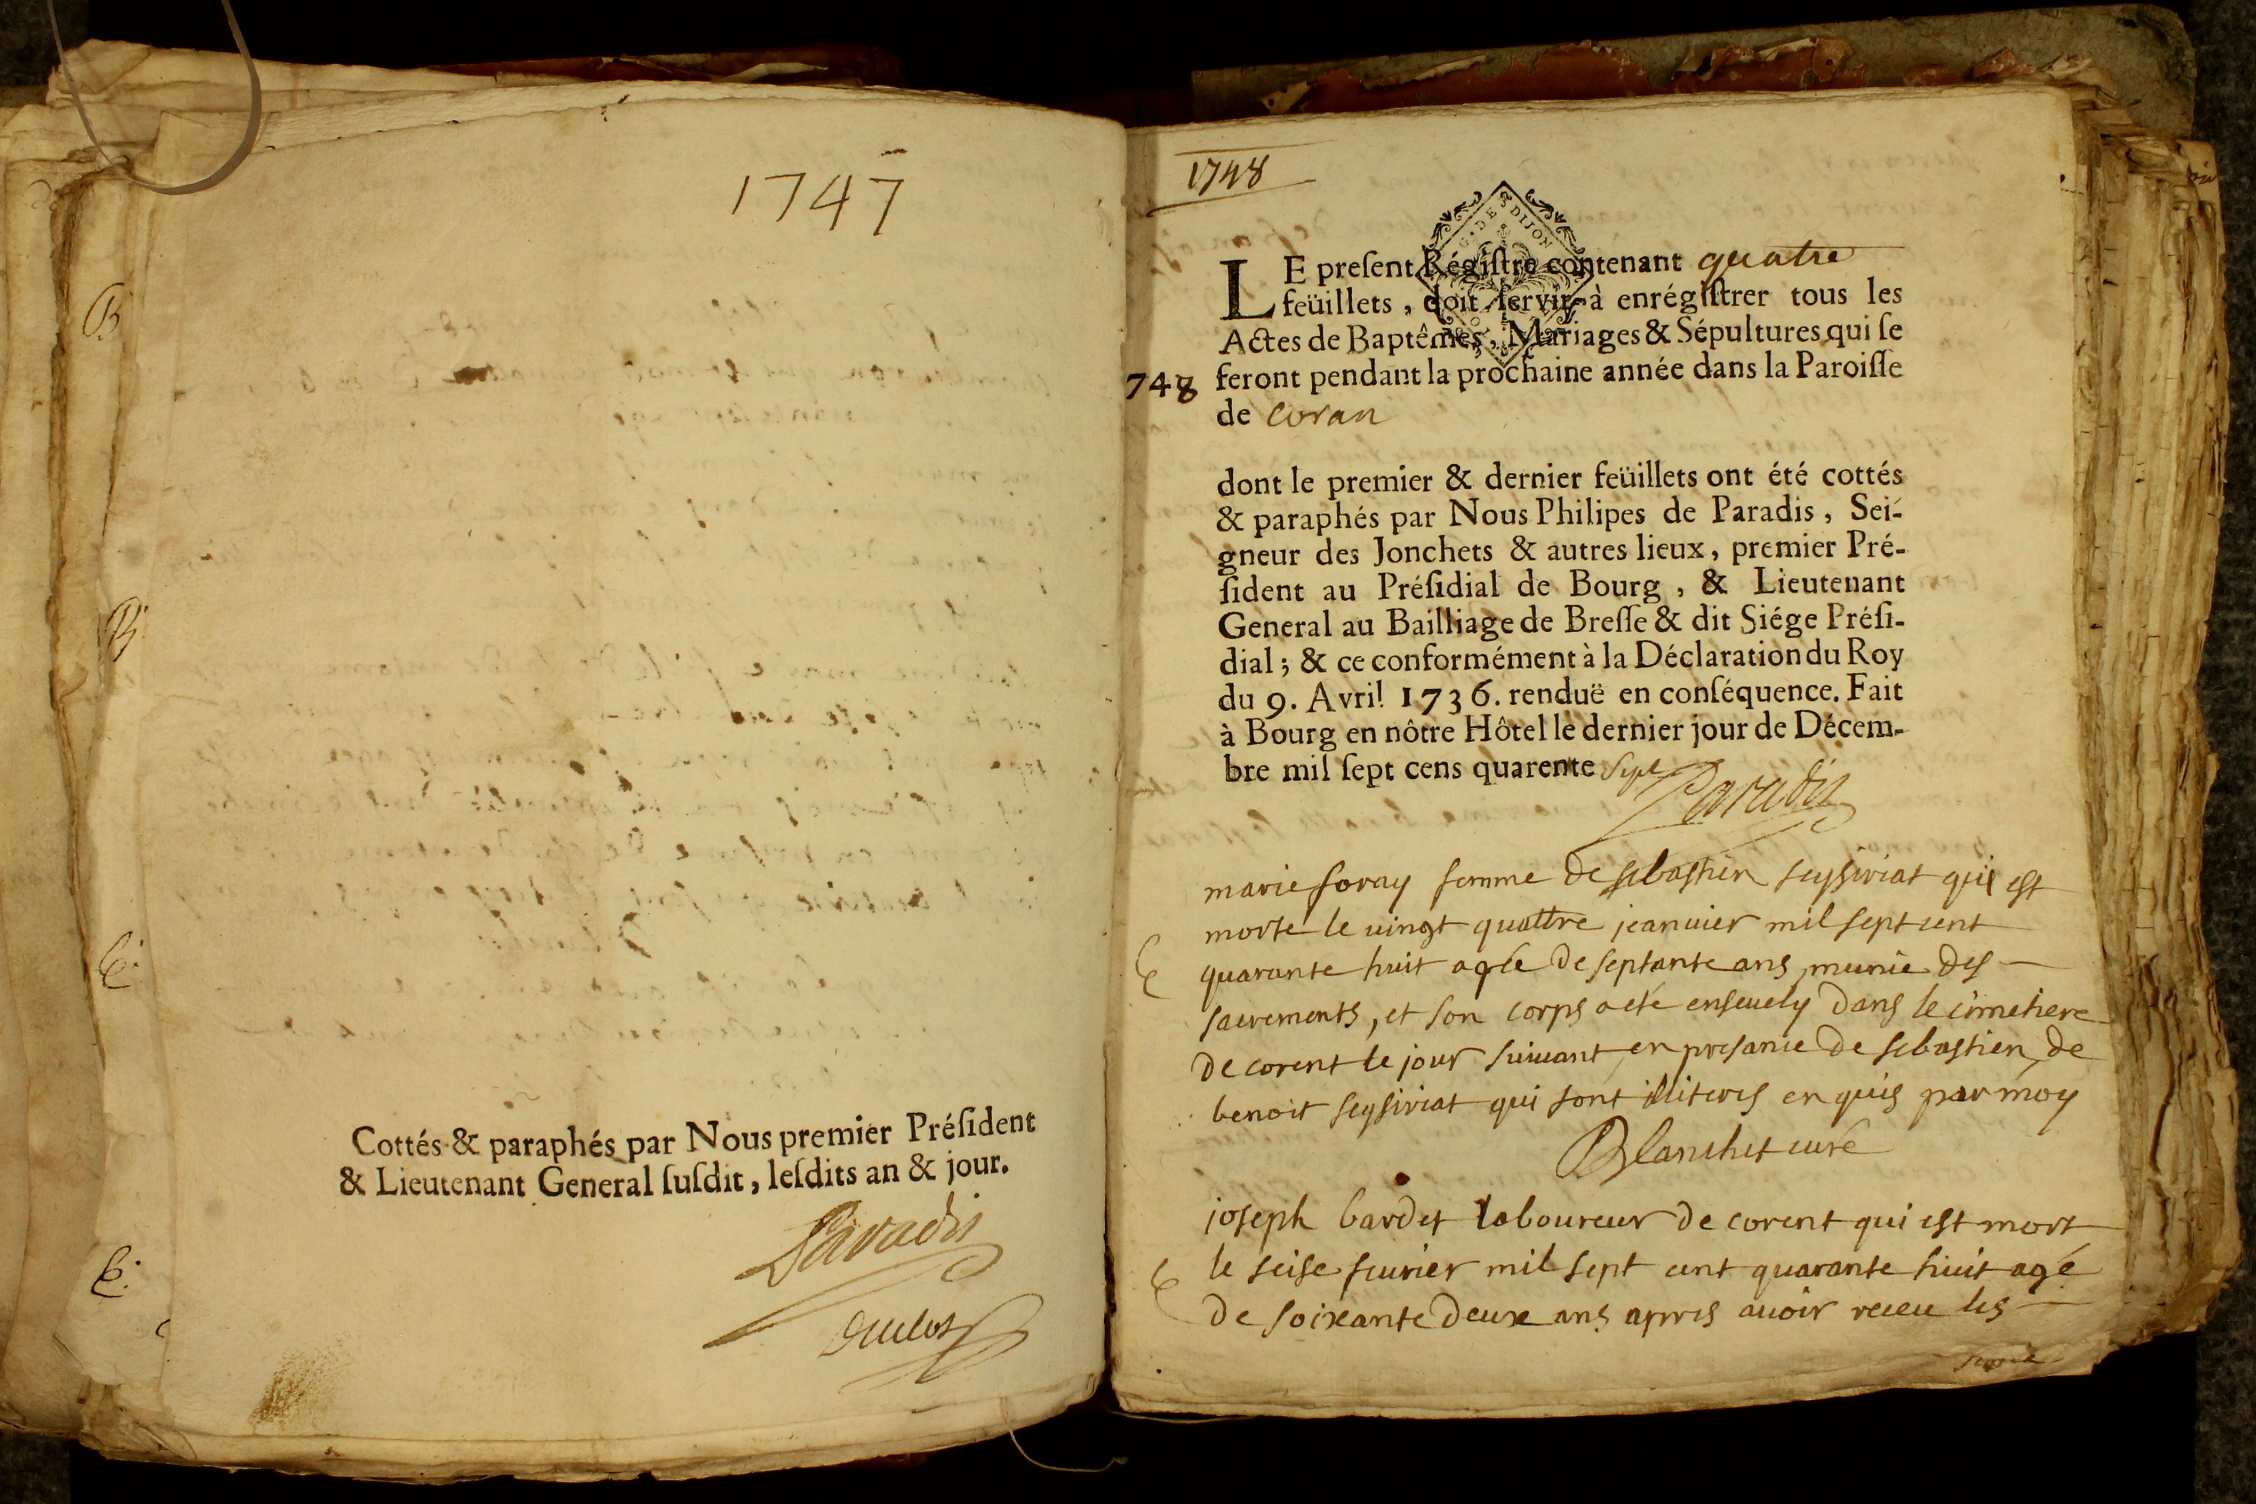 1747
Cottés & paraphés par Nous premier Préſident
& Lieutenant General ſuſdit, leſdits an & jour.
Paradis
1748
G. DE DIJON
LE preſent Régiſtre contenant quatre
feüillets, doit ſervir à enrégiſtrer tous les
Actes de Baptêmes, Mariages & Sépultures qui ſe
748 feront pendant la prochaine année dans la Paroiſſe
de Coran
dont le premier & dernier feüillets ont été cottés
& paraphés par Nous Philipes de Paradis, Sei-
gneur des Jonchets & autres lieux, premier Pré-
ſident au Préſidial de Bourg, & Lieutenant
General au Bailliage de Breſſe & dit Siége Préſi-
dial; & ce conformément à la Déclaration du Roy
du 9. Avril 1736. renduë en conſéquence. Fait
à Bourg en nôtre Hôtel le dernier jour de Décem-
bre mil ſept cens quarente sept
Paradis
marie foray femme de sebastien seysiriat qui est
morte le vingt quattre jeanvier mil sept cent
quarante huit agée de septante ans munie des
sacrements, et son corps a eté ensevely dans le cimetiere
de corent le jour suivant en presance de sebastien de
benoit seysiriat qui sont illiteres enquis par moy
Blanchet curé
joseph bardet laboureur de corent qui est mort
le seise fevrier mil sept cent quarante huit agé
de soixante deux ans apres avoir receu les